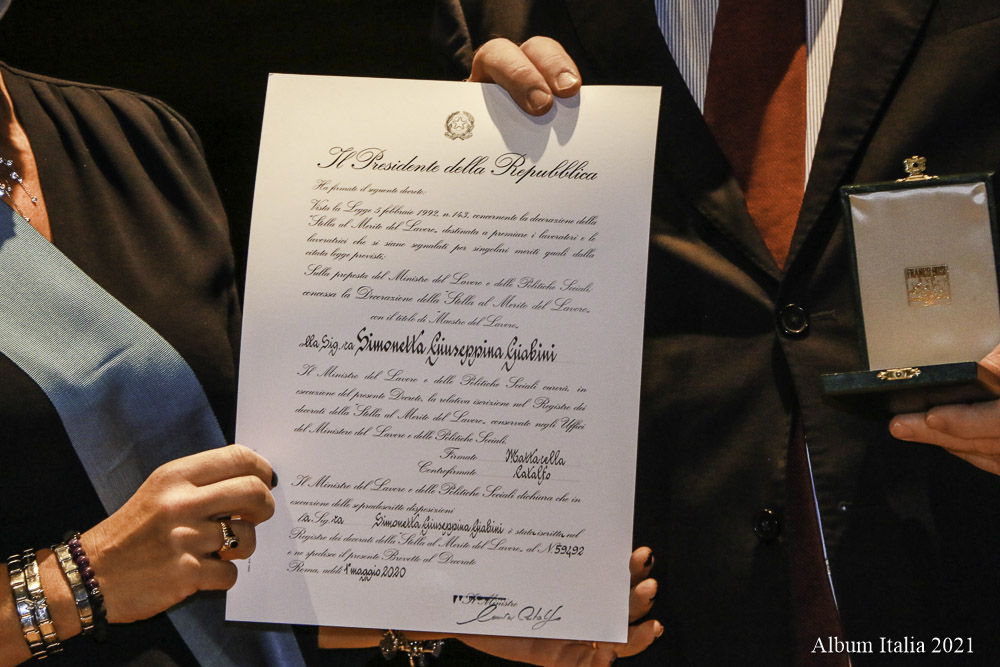 Il Presidente della Repubblica
Ha firmato il seguente decreto:
Vista la Legge 5 febbraio 1992, n. 143, concernente la decorazione della
"Stella al Merito del Lavoro„ destinata a premiare i lavoratori e le
lavoratrici che si siano segnalati per singolari meriti quali dalla
citata legge previsti;
Sulla proposta del Ministro del Lavoro e delle Politiche Sociali;
concessa la Decorazione della "Stella al Merito del Lavoro„
con il titolo di "Maestro del Lavoro„
alla Sig.ra Simonetta Giuseppina Giabini
Il Ministro del Lavoro e delle Politiche Sociali curerà, in
esecuzione del presente Decreto, la relativa iscrizione nel Registro dei
decorati della "Stella al Merito del Lavoro„ conservato negli Uffici
del Ministero del Lavoro e delle Politiche Sociali.
Firmato Mattarella
Controfirmato Catalfo
Il Ministro del Lavoro e delle Politiche Sociali dichiara che in
esecuzione delle sopradescritte disposizioni
la Sig.ra Simonetta Giuseppina Giabini è stata iscritta nel
Registro dei decorati della "Stella al Merito del Lavoro„ al N. 59492
e ne spedisce il presente Brevetto al Decorato
Roma, addì 1° maggio 2020
Il Ministro
Album Italia 2021